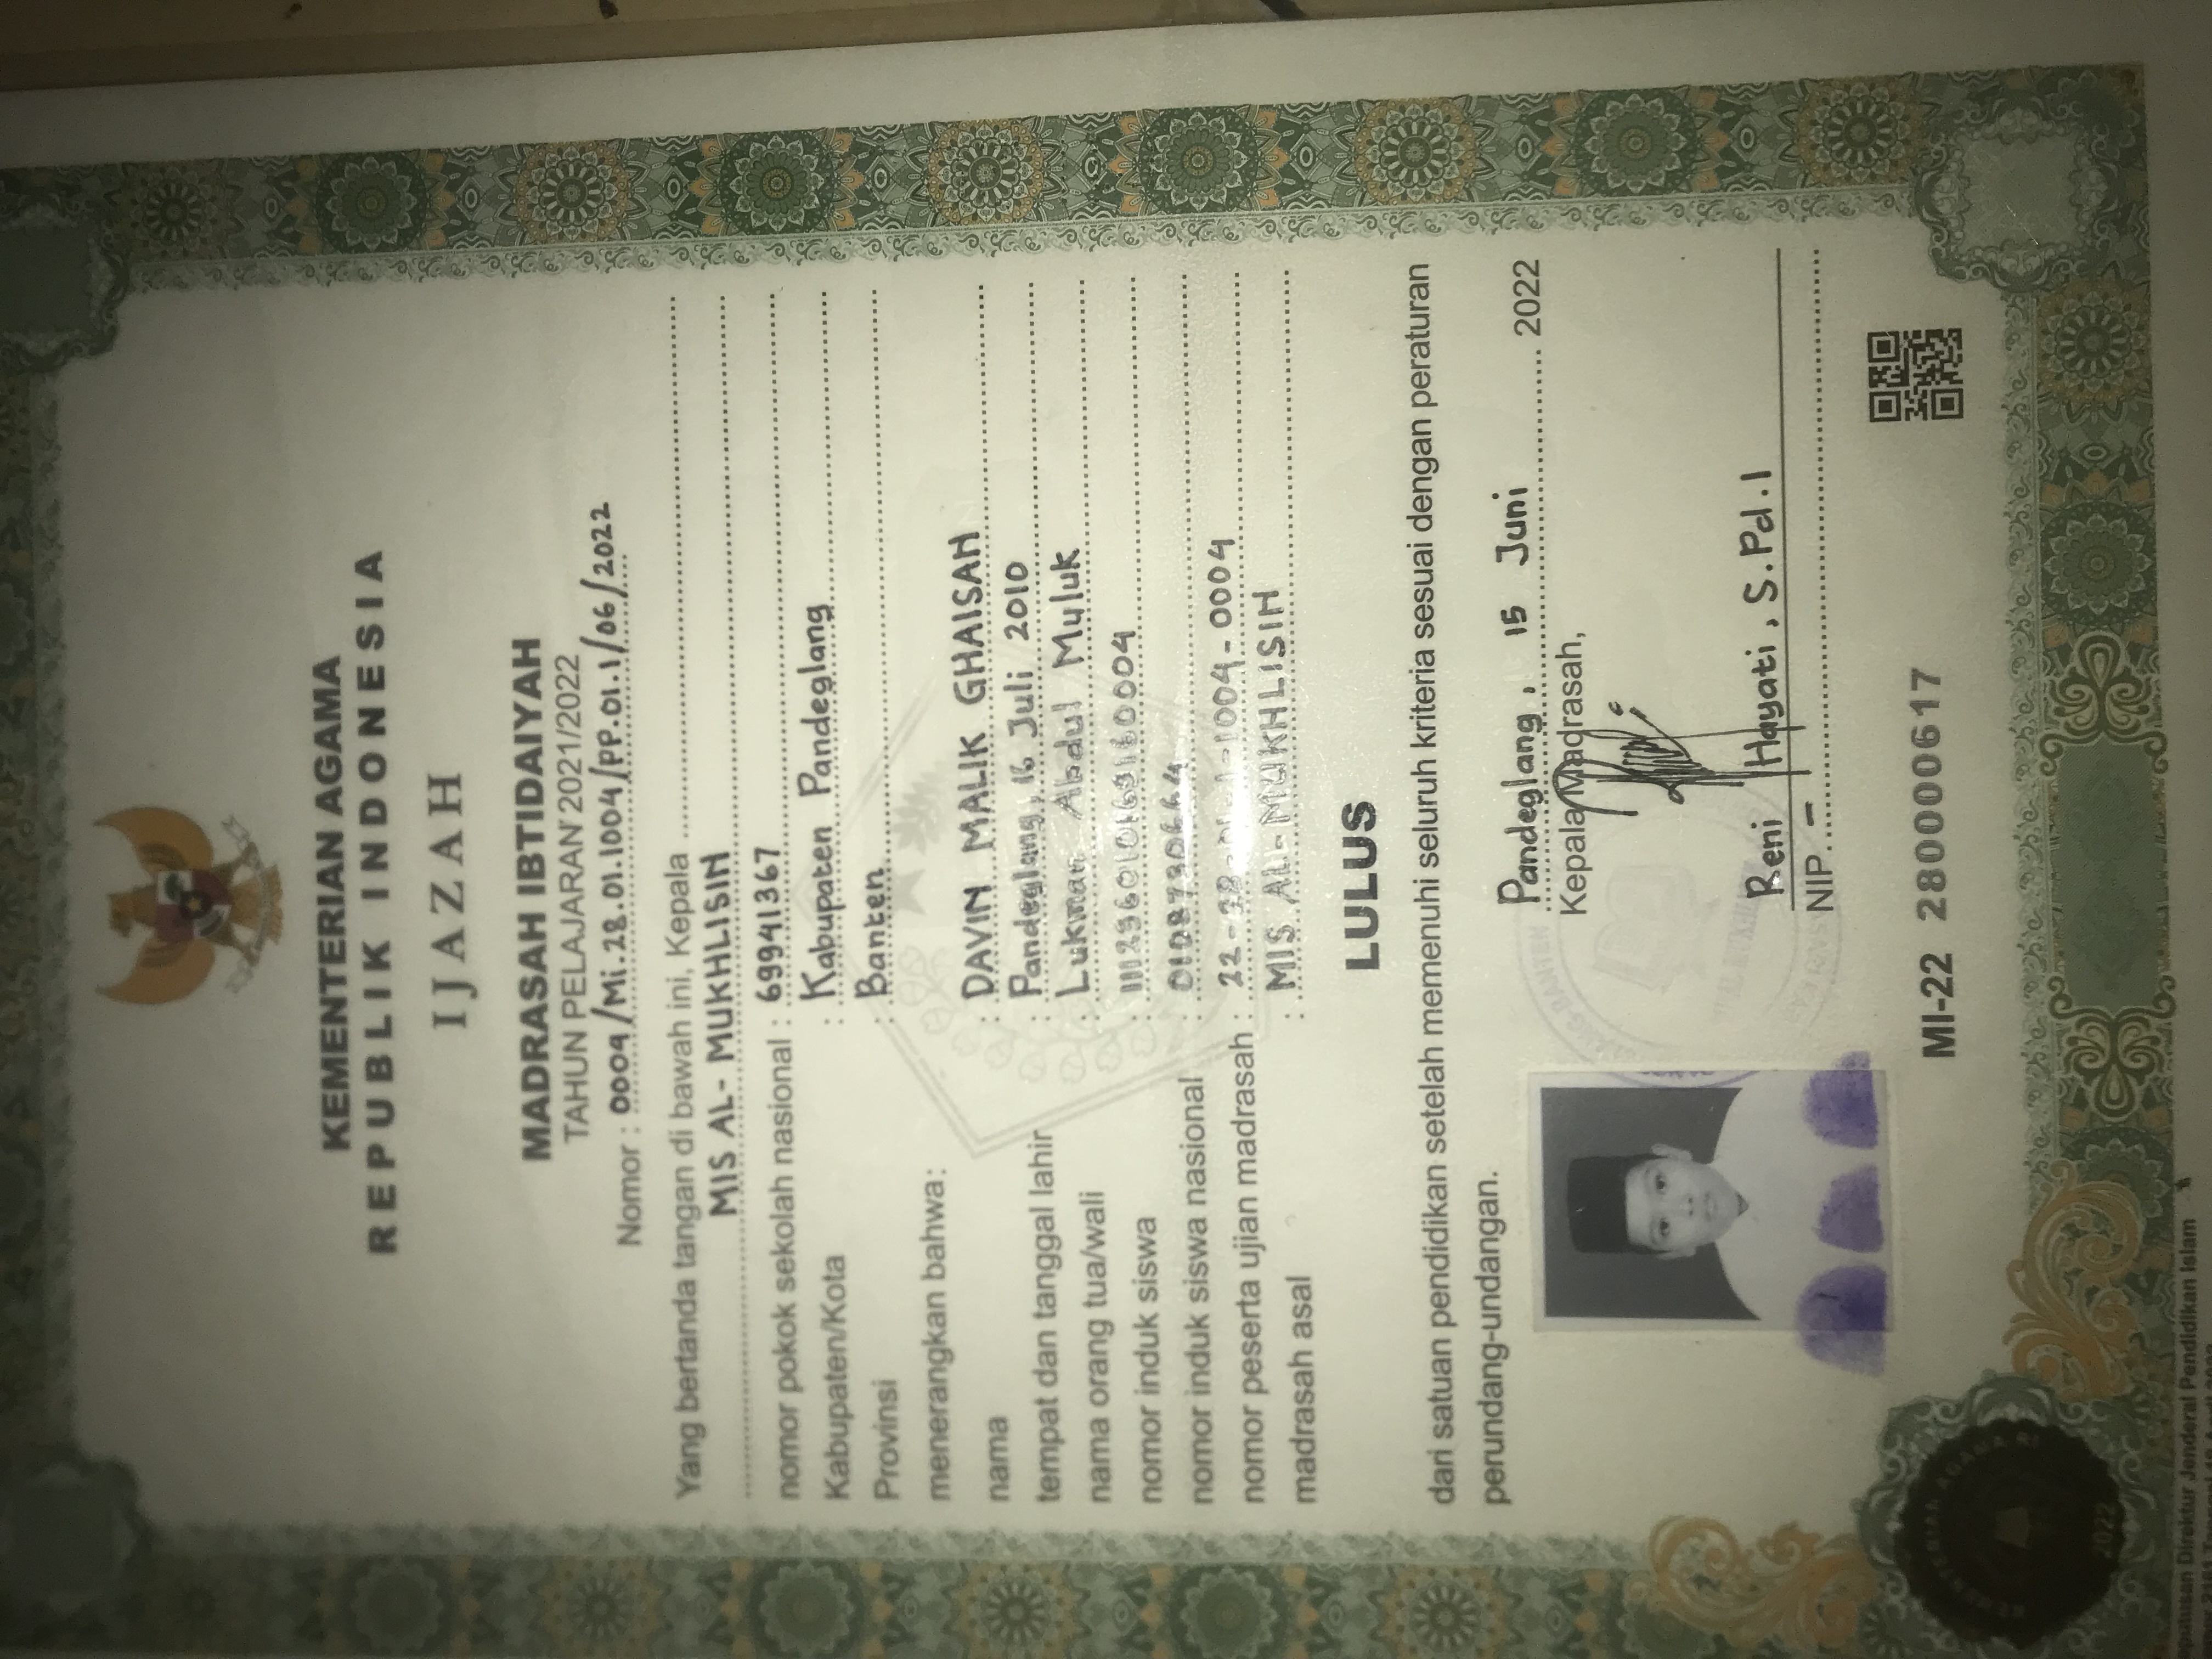 KEMENTERIAN AGAMA
REPUBLIK INDONESIA
IJAZAH
MADRASAH IBTIDAIYAH
TAHUN PELAJARAN 2021/2022
Nomor : 0004/Mi.28.01.1004/PP.01.1/06/2022
Yang bertanda tangan di bawah ini, Kepala
MIS AL-MUKHLISIN
nomor pokok sekolah nasional : 69941367
Kabupaten/Kota : Kabupaten Pandeglang
Provinsi : Banten
menerangkan bahwa:
nama : DAVIN MALIK GHAISAN
tempat dan tanggal lahir : Pandeglang, 16 Juli 2010
nama orang tua/wali : Lukman Abdul Muluk
nomor induk siswa :
nomor induk siswa nasional :
nomor peserta ujian madrasah :
madrasah asal : MIS AL-MUKHLISIN
LULUS
dari satuan pendidikan setelah memenuhi seluruh kriteria sesuai dengan peraturan
perundang-undangan.
Pandeglang, 15 Juni 2022
Kepala Madrasah,
Reni Hayati, S.Pd.I
NIP. -
MI-22 280000617
KEMENTERIAN AGAMA RI
2022
Direktur Jenderal Pendidikan Islam